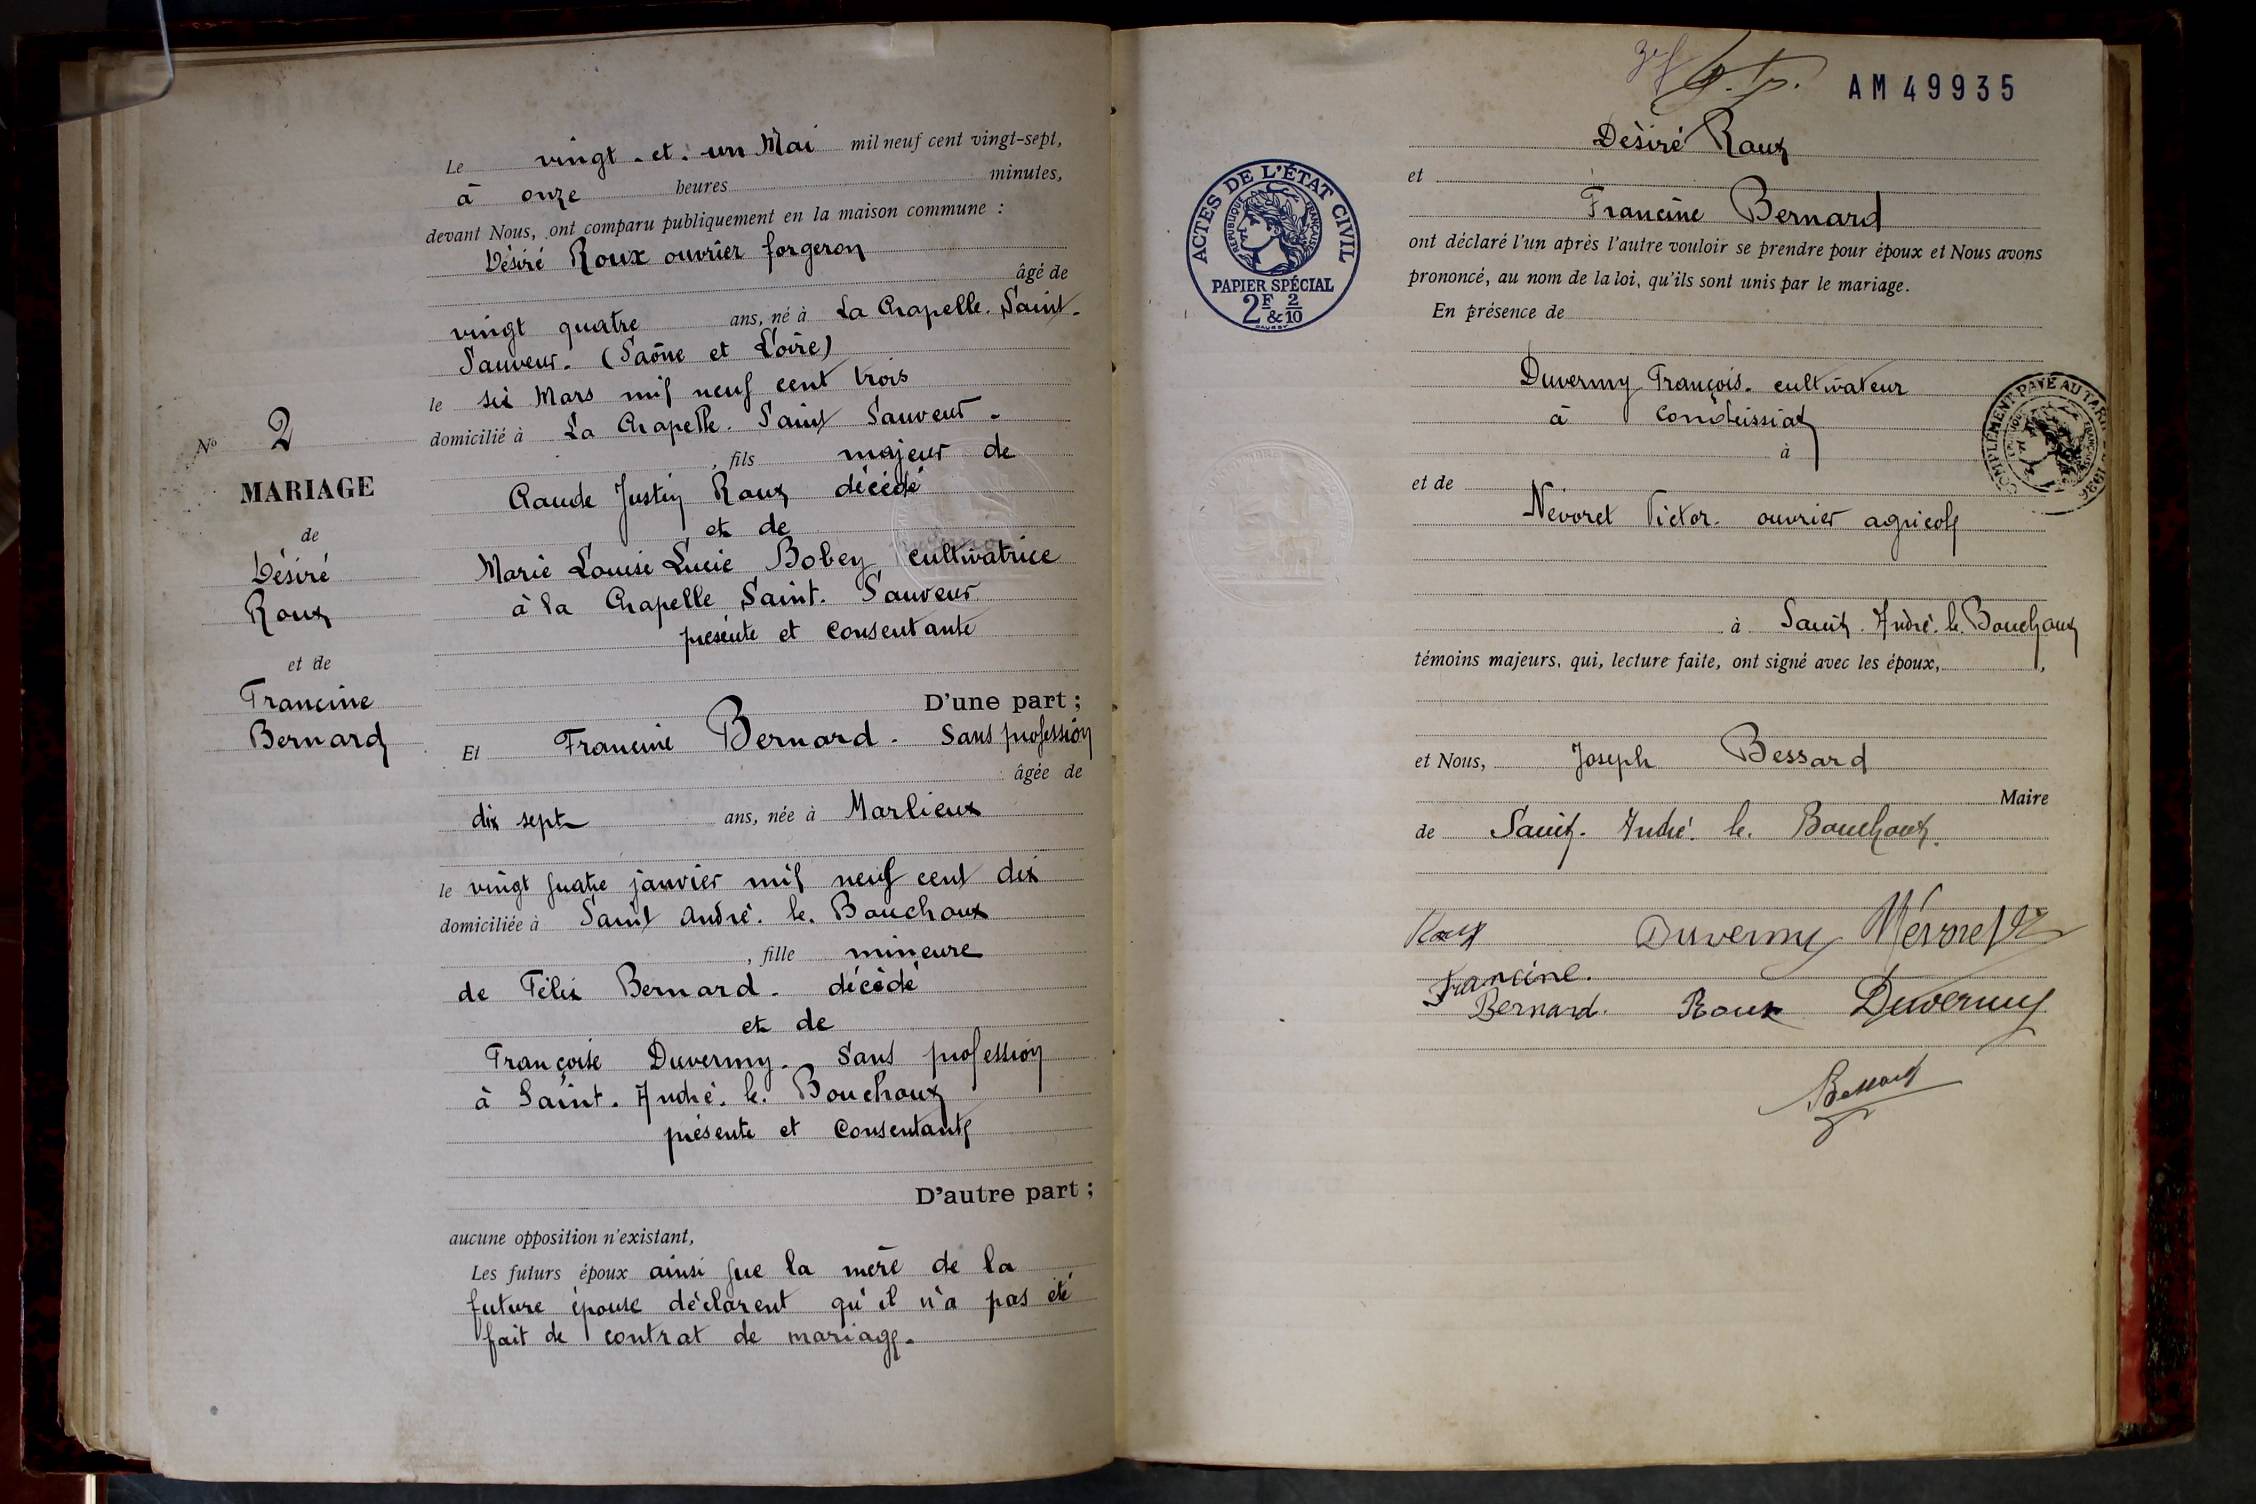 Le vingt. et. un Mai mil neuf cent vingt-sept,
à onze heures minutes,
devant Nous, ont comparu publiquement en la maison commune :
Désiré Roux ouvrier forgeron
âgé de
vingt quatre ans, né à La Chapelle. Saint.
Sauveur. (Saône et Loire)
le six Mars mil neuf cent trois
domicilié à La Chapelle. Saint Sauveur.
, fils majeur de
Claude Justin Roux décédé
et de
Marie Louise Lucie Bobey cultivatrice
à la Chapelle Saint. Sauveur
présente et consentante
D'une part ;
Et Francine Bernard. Sans profession
âgée de
dix sept ans, née à Marlieux
le vingt quatre janvier mil neuf cent dix
domiciliée à Saint André. le. Bouchoux
, fille mineure
de Félix Bernard. décédé
et de
Françoise Duvermy. Sans profession
à Saint. André. le. Bouchoux
présente et consentante
D'autre part ;
aucune opposition n'existant,
Les futurs époux ainsi que la mère de la
future épouse déclarent qu'il n'a pas été
fait de contrat de mariage.
No 2
MARIAGE
de
Désiré
Roux
et de
Francine
Bernard
AM 49935
Désiré Roux
et
Francine Bernard
ont déclaré l'un après l'autre vouloir se prendre pour époux et Nous avons
prononcé, au nom de la loi, qu'ils sont unis par le mariage.
En présence de
Duvermy François. cultivateur
à Condeissiat
à
et de
Névoret Victor. ouvrier agricole
à Saint. André. le. Bouchoux
témoins majeurs, qui, lecture faite, ont signé avec les époux, ,
et Nous, Joseph Bessard
Maire
de Saint. André. le. Bouchoux.
Roux Duvermy Névoret
Francine.
Bernard. Roux Duvermy
Bessard
ACTES DE L'ÉTAT CIVIL
RÉPUBLIQUE FRANÇAISE
PAPIER SPÉCIAL
2F & 2/10
COMPLÉMENT PAYÉ AU TARIF